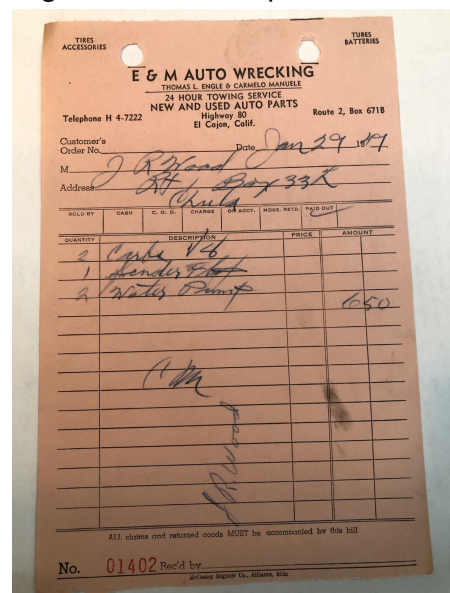 TIRES TUBES
ACCESSORIES BATTERIES
E & M AUTO WRECKING
THOMAS L. ENGLE & CARMELO MANUELE
24 HOUR TOWING SERVICE
NEW AND USED AUTO PARTS
Telephone H 4-7222 Highway 80 Route 2, Box 671B
El Cajon, Calif.
Customer's
Order No. Date Jan 29 19
M J R Wood
Address Box 33K
Chula
SOLD BY CASH C. O. D. CHARGE ON ACCT. MDSE. RETD. PAID OUT
QUANTITY DESCRIPTION PRICE AMOUNT
2 Carbs V8
1 Fender
2 Water Pump 650
C M
J R Wood
ALL claims and returned goods MUST be accompanied by this bill
No. 01402 Rec'd by
McCaskey Register Co., Alliance, Ohio